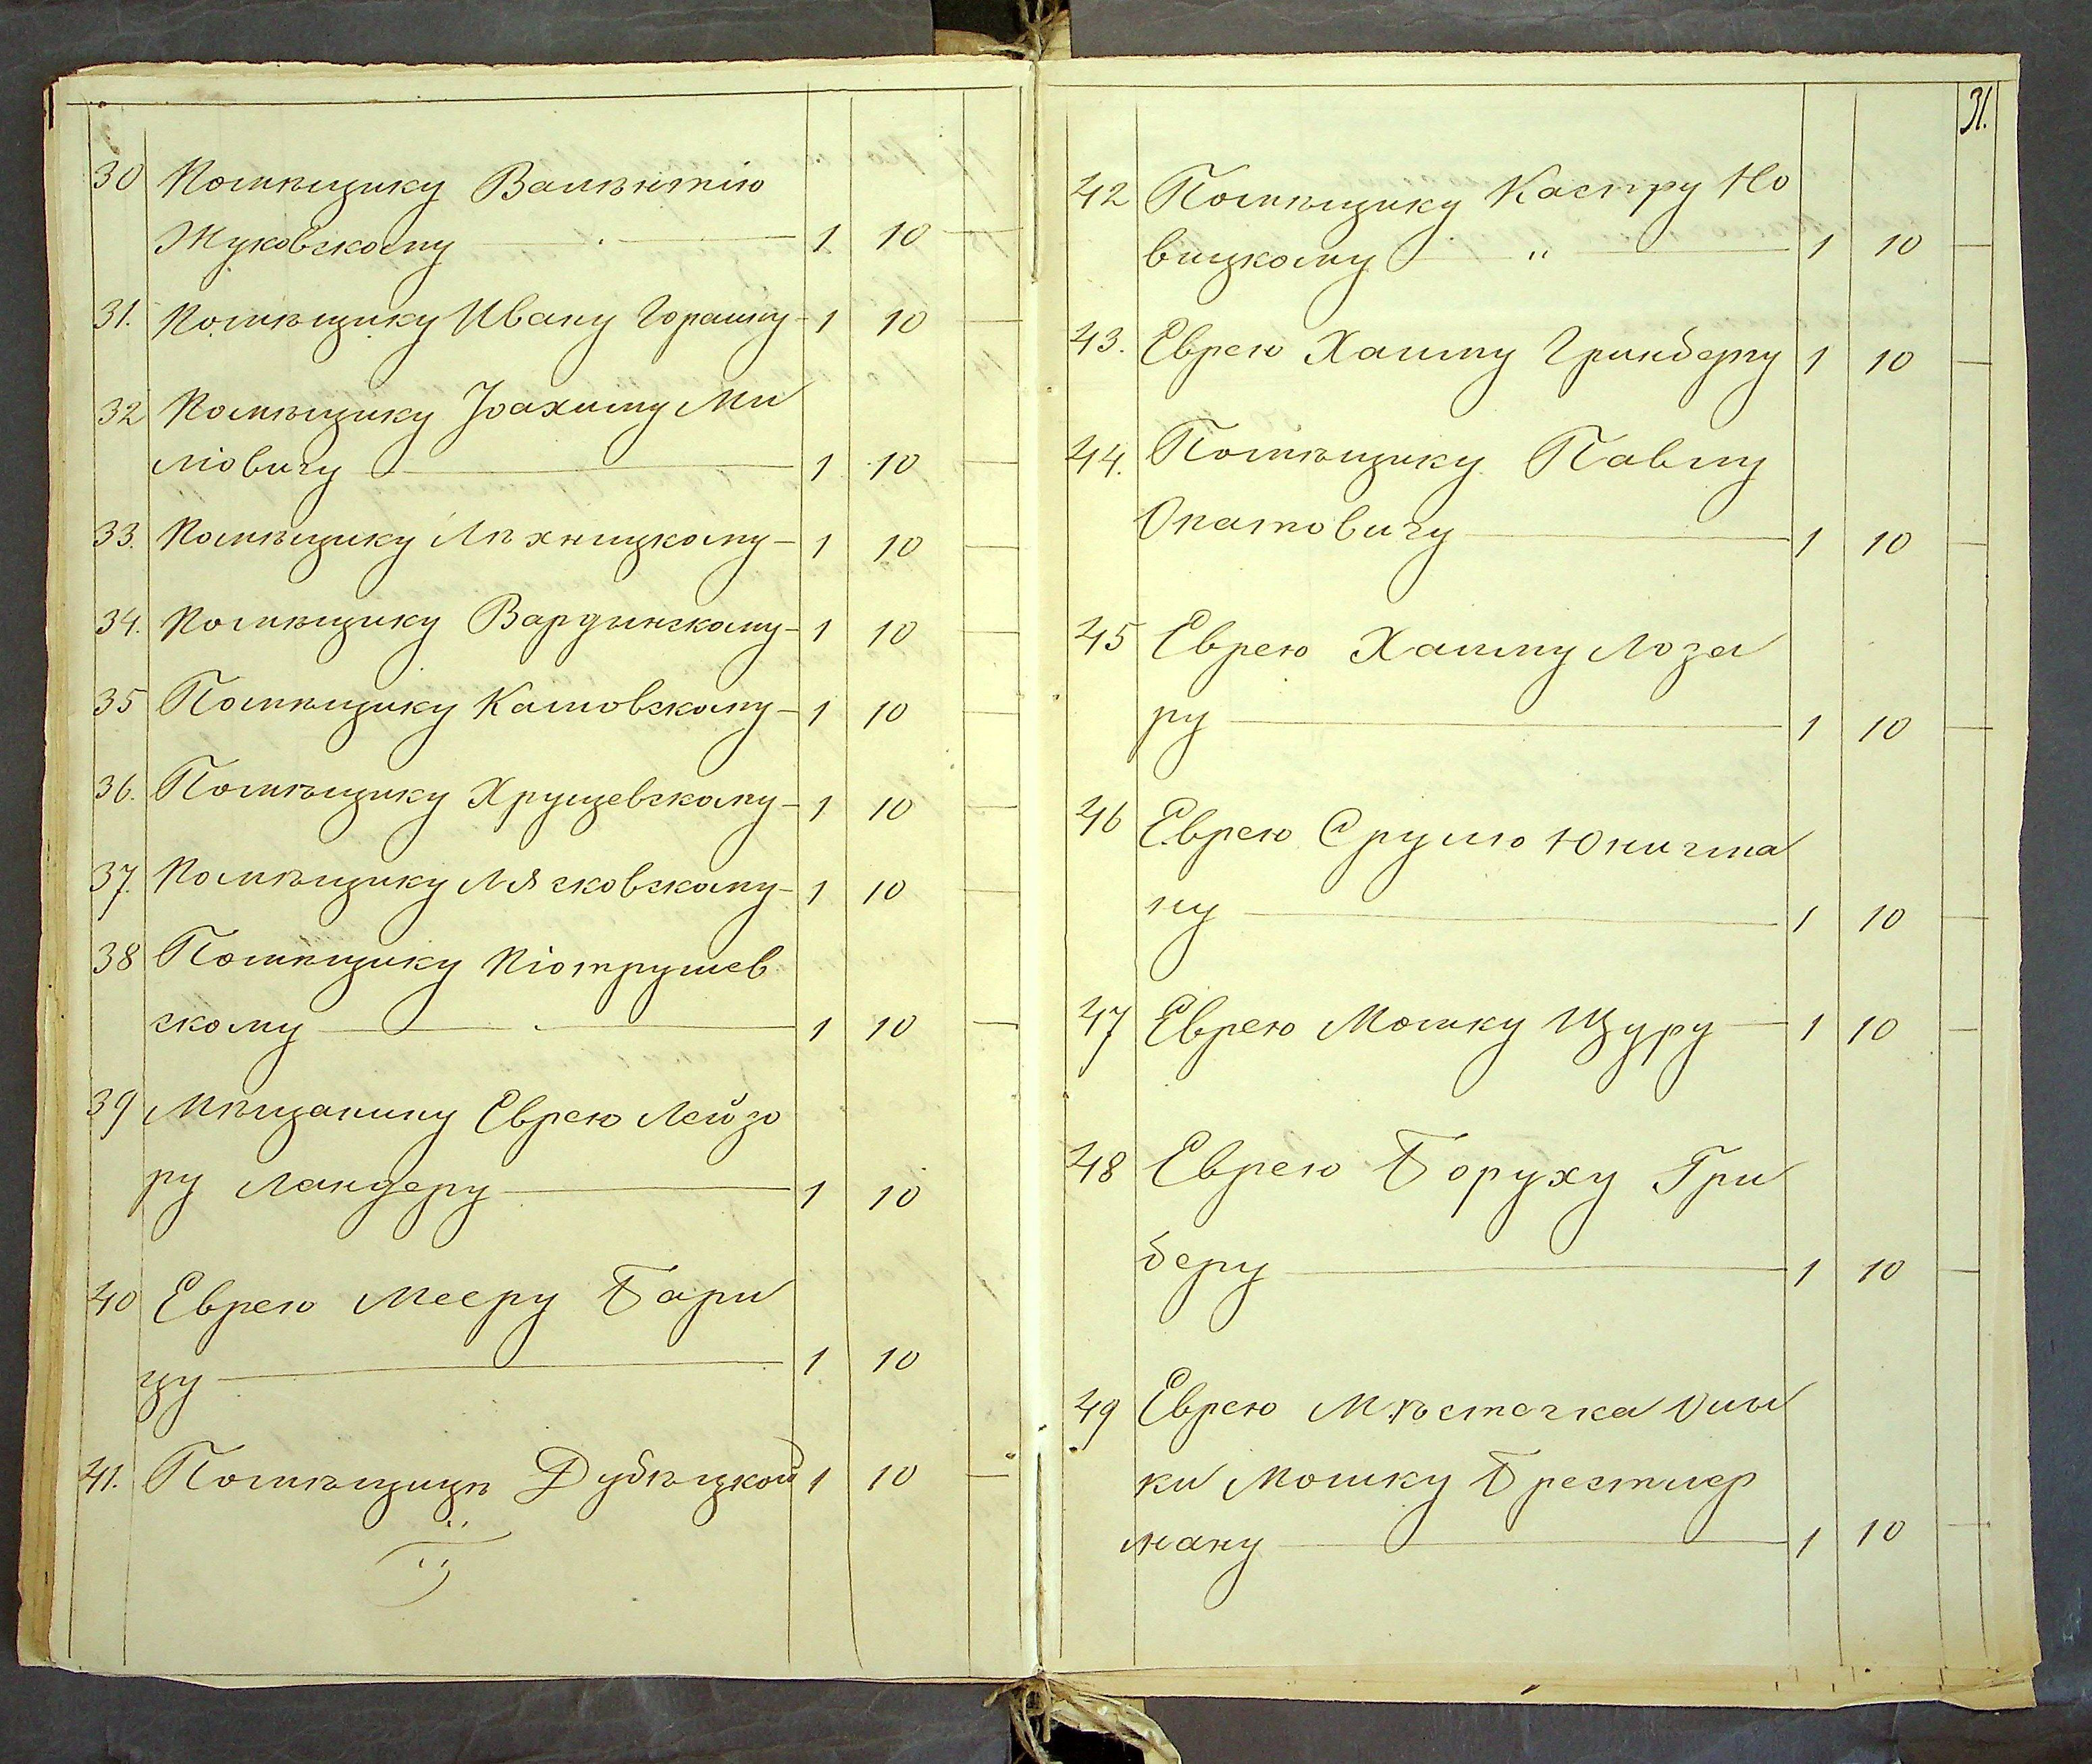 30 Помѣщику Валѣнтію
Жуковскому 1 10
31. Помѣщику Ивану Горашу 1 10
32 Помѣщику Іоахиму Ми
ліовичу 1 10
33. Помѣщику Лѣхницкому 1 10
34. Помѣщику Вардынскому 1 10
35 Помѣщику Каловскому 1 10
36. Помѣщику Хрущевскому 1 10
37. Помѣщику Лясковскому 1 10
38 Помѣщику Піотрушев
скому 1 10
39 Мѣщанину Еврею Лейзо
ру Ландеру 1 10
40 Еврею Мееру Бари
цу 1 10
41. Помѣщицѣ Дубѣцкой 1 10
31.
42 Помѣщику Каспру Но
вицкому " 1 10
43. Еврею Хаиму Гринбергу 1 10
44. Помѣщику Павлу
Опатовичу 1 10
45 Еврею Хаиму Лоза
ру 1 10
46 Еврею Срулю Юничма
ну 1 10
47 Еврею Мошку Щуру 1 10
48 Еврею Боруху Гри
беру 1 10
49 Еврею Мѣстечка
ки Мошку Брестлер
ману 1 10